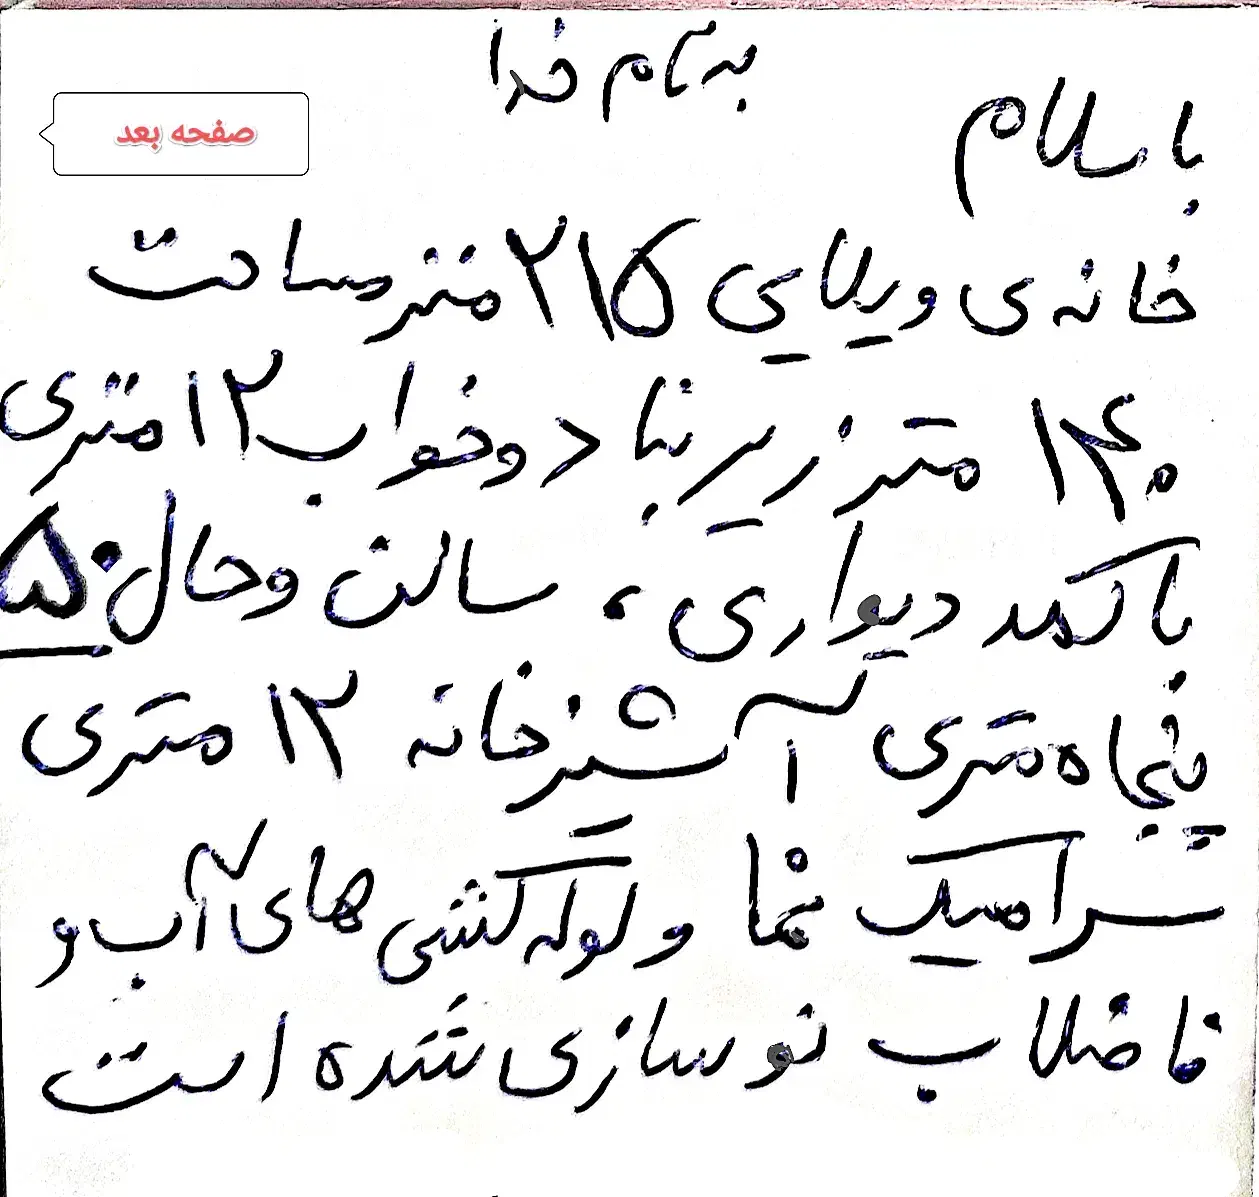 به نام خدا
صفحه بعد
با سلام
خانه ی ویلایی ۲۱۵ متر مساحت
۱۴۰ متر زیر بنا دو خواب ۱۲ متری
با کمد دیواری ، سالن و حال ۵۰
پنجاه متری آشپزخانه ۱۲ متری
سرامیک نما و لوله کشی های آب و
فاضلاب نوسازی شده است